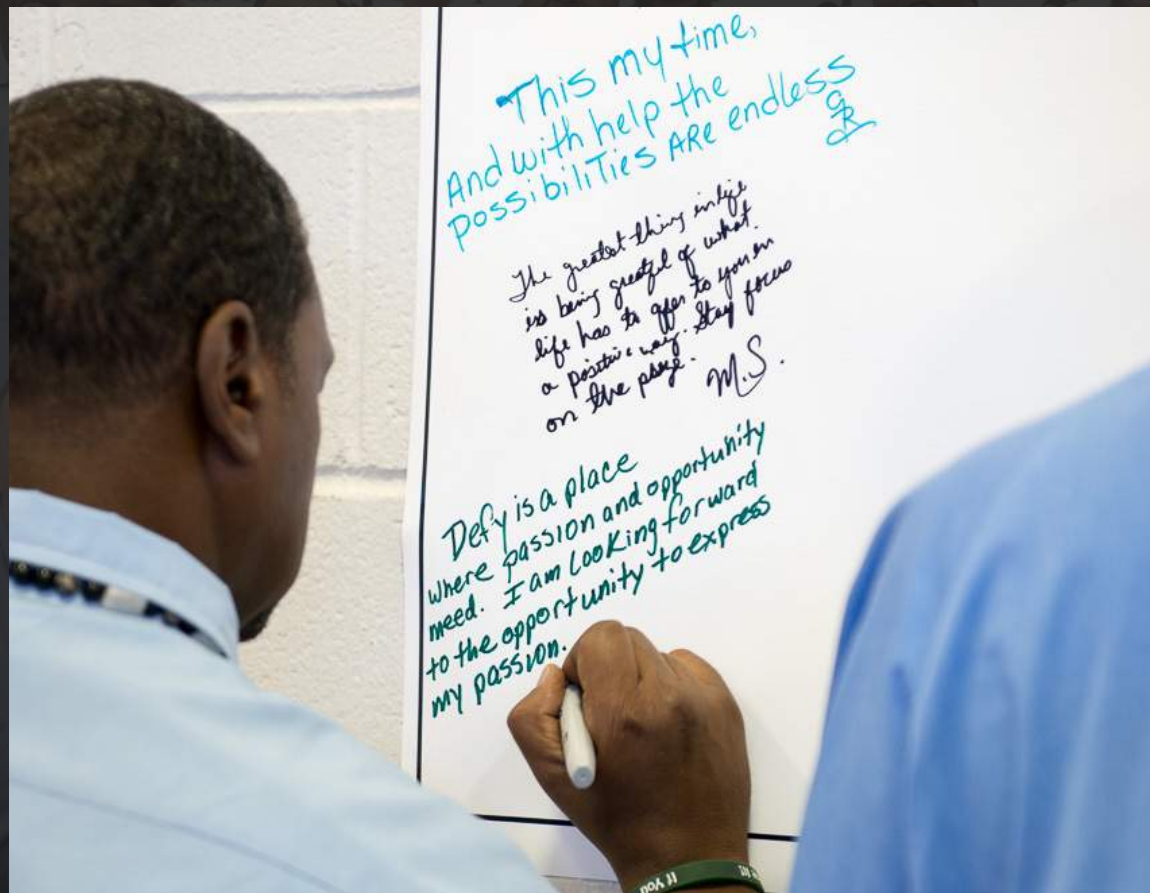 This my time,
And with help the
possibiliTies ARe endless
GR
The greatest thing in life
is being greatful of what
life has to offer to you in
a positive way. Stay focus
on the
M.S.
Defy is a place
where passion and opportunity
meed. I am Looking forward
to the opportunity to express
my passion.
If You